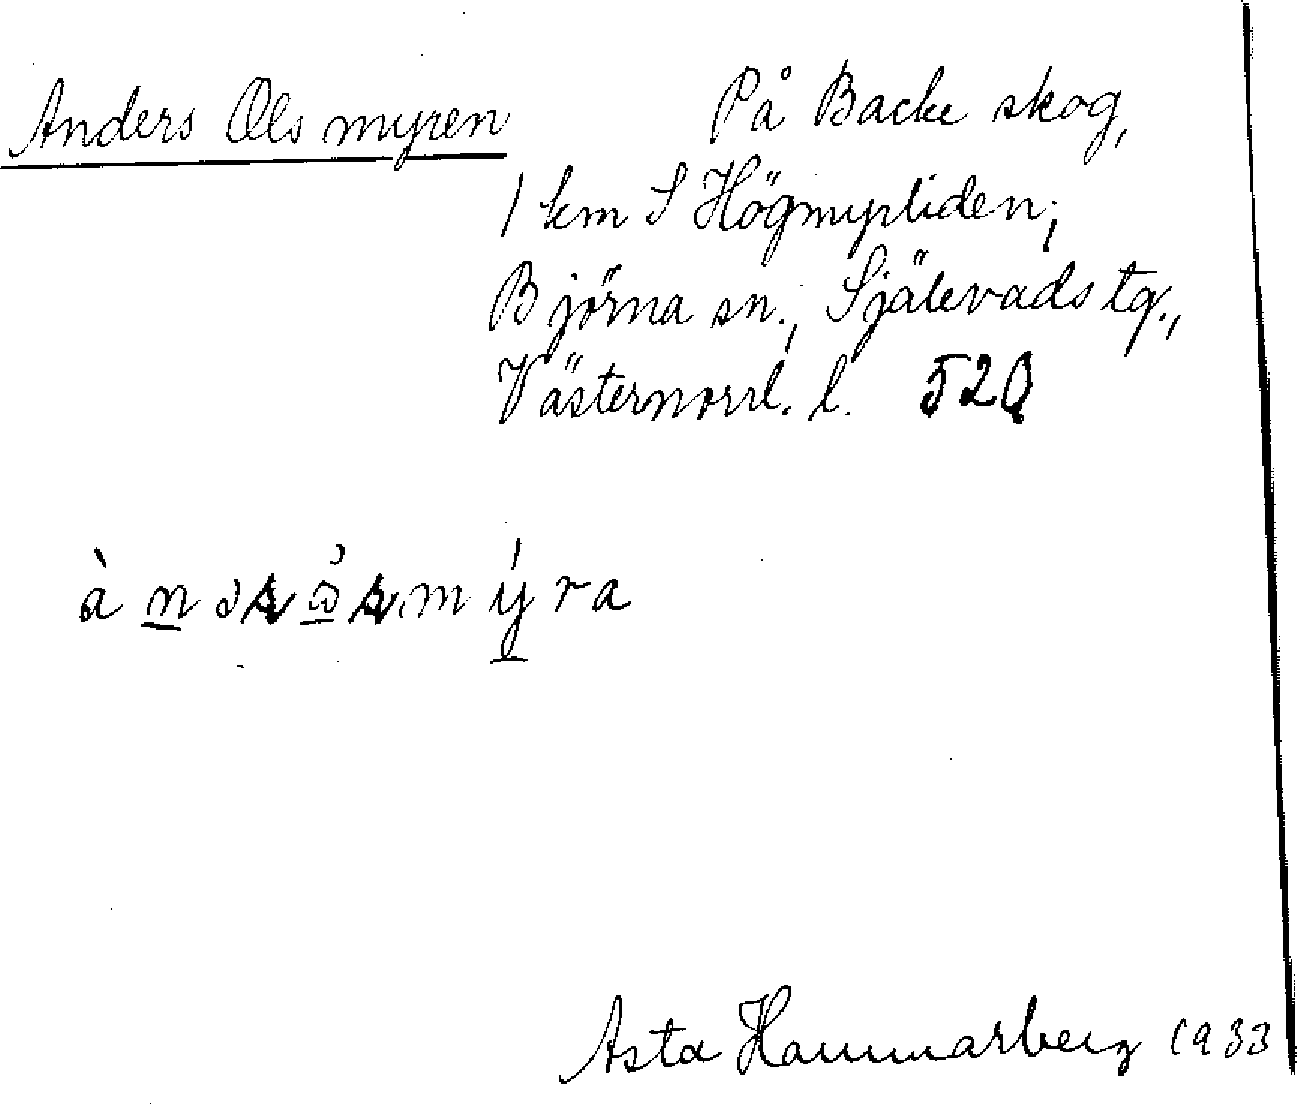 Anders Ols myren
På Backe skog,
1 km S Högmyrliden;
Björna sn., Själevads tg.,
Västernorrl. l. 52Q
Asta Hammarberg 1933